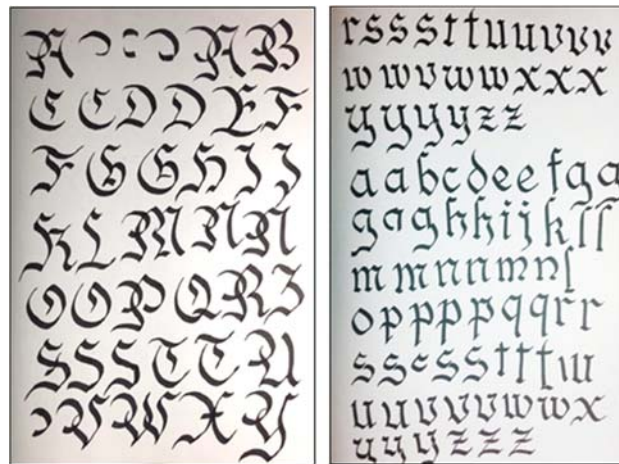 A A B
C C D D E F
F G G H I J
K L M N N
O O P Q R Z
S S S T T U
V W X Y
r s s s t t u u v v v
w w v w w x x x
y y y y z z
a a b c d e e f g a
g a g h h i j k l ſ
m m n n m n ſ
o p p p p q q r r
s s c s s t t t u
u u v v v w w x
y y y z z z